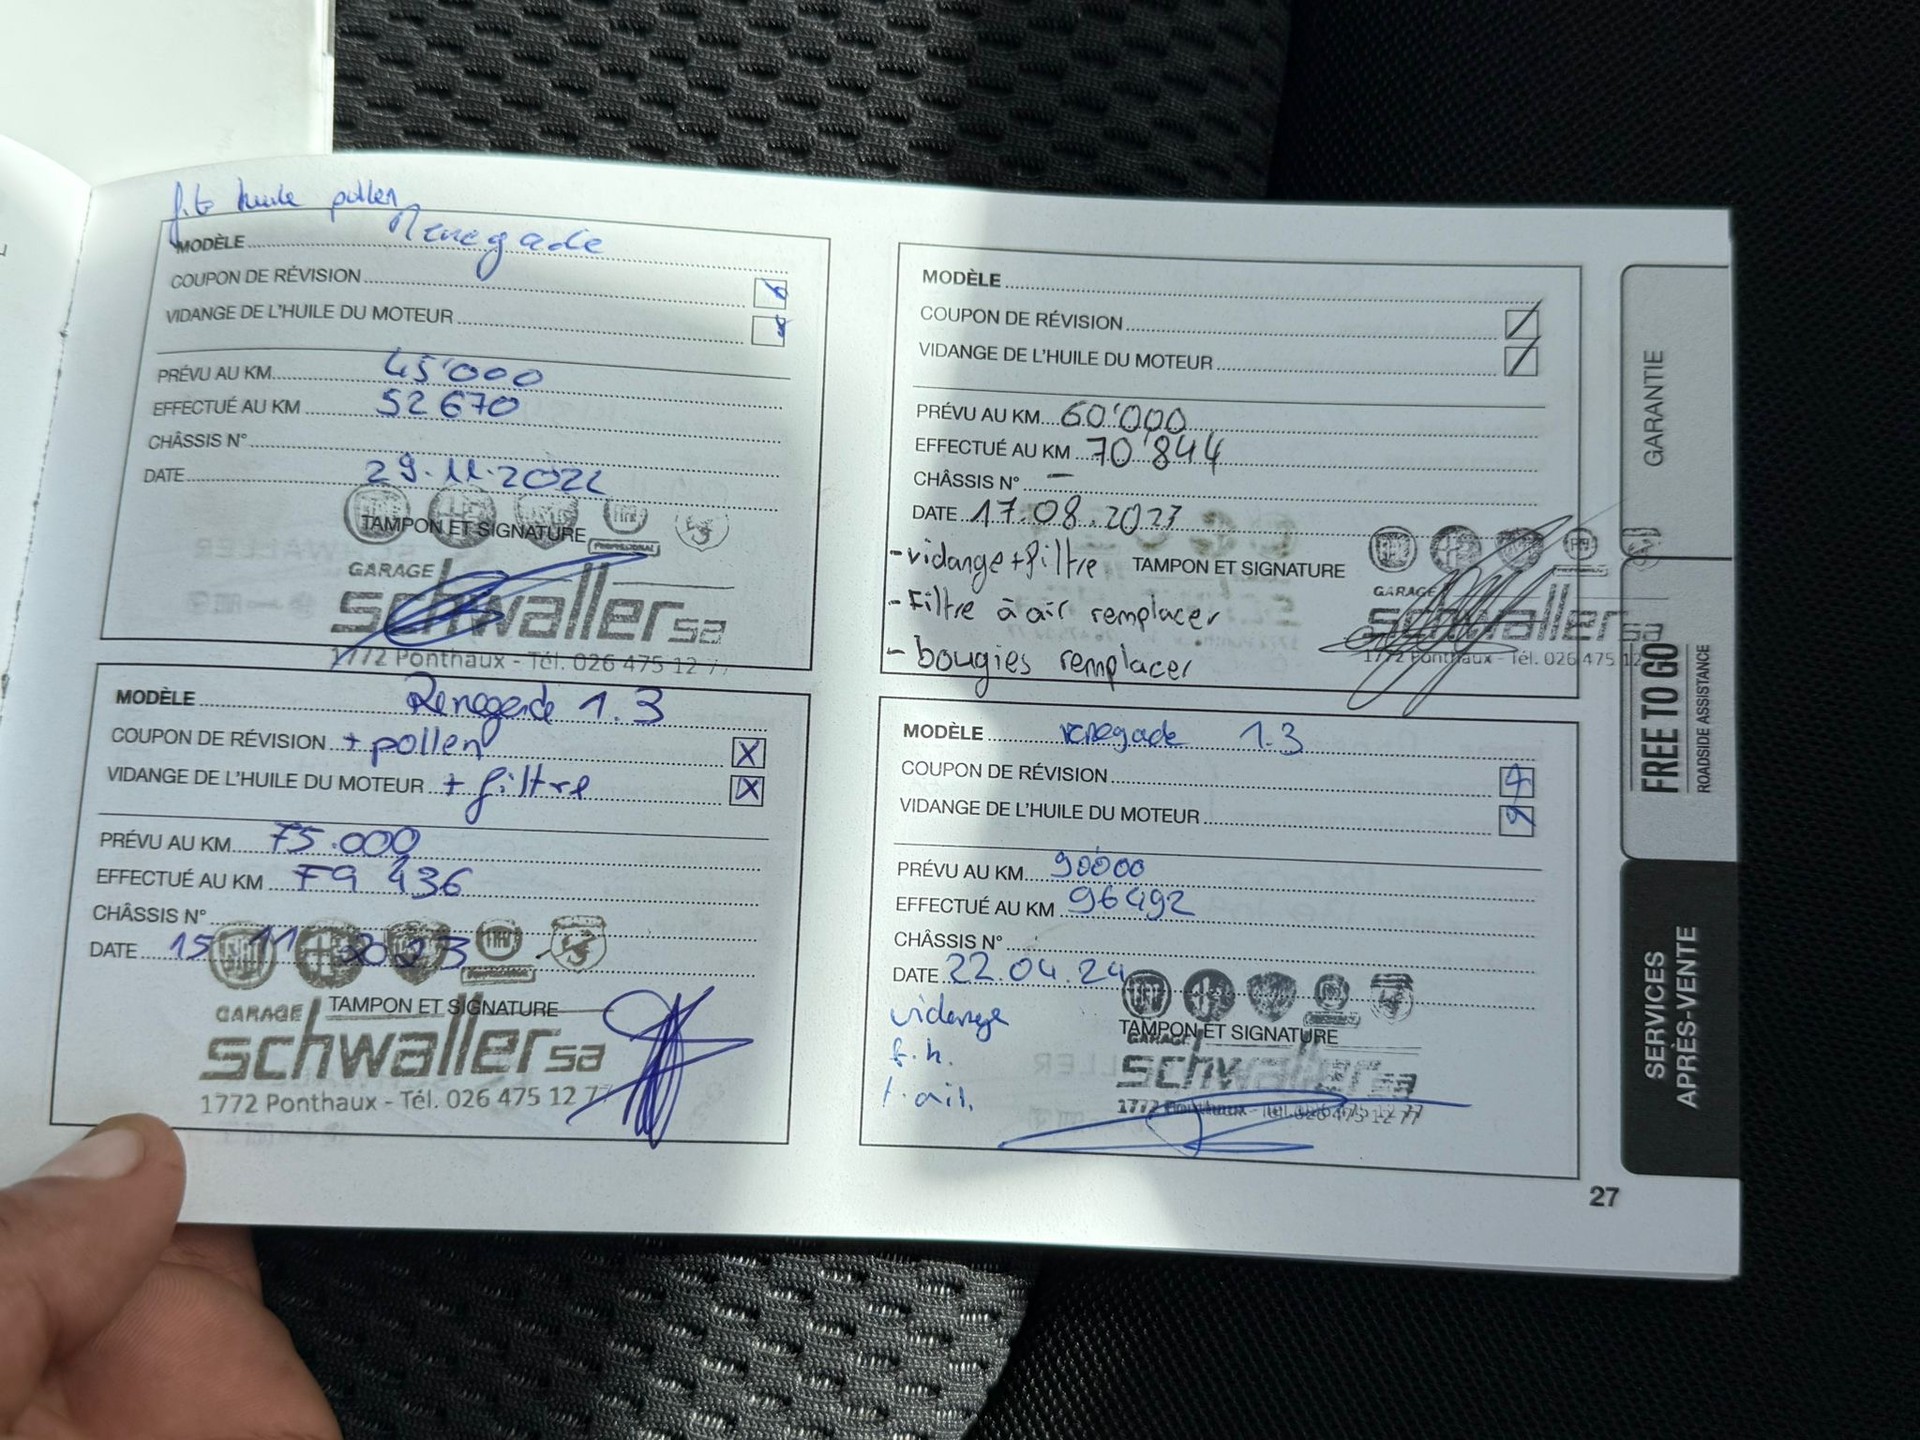 huile pollen
MODÈLE Renegade
COUPON DE RÉVISION
VIDANGE DE L'HUILE DU MOTEUR
PRÉVU AU KM 45'000
EFFECTUÉ AU KM 52670
CHÂSSIS N°
DATE 29.11.2022
TAMPON ET SIGNATURE
GARAGE
schwaller sa
1772 Ponthaux - Tél. 026 475 12 77
MODÈLE Renegade 1.3
COUPON DE RÉVISION + pollen X
VIDANGE DE L'HUILE DU MOTEUR + filtre X
PRÉVU AU KM 75.000
EFFECTUÉ AU KM 79 436
CHÂSSIS N°
DATE 15 11 2023
TAMPON ET SIGNATURE
GARAGE
schwaller sa
1772 Ponthaux - Tél. 026 475 12 77
MODÈLE
COUPON DE RÉVISION
VIDANGE DE L'HUILE DU MOTEUR
PRÉVU AU KM 60'000
EFFECTUÉ AU KM 70'844
CHÂSSIS N° -
DATE 17.08.2023
- vidange + filtre
TAMPON ET SIGNATURE
- Filtre à air remplacer
- bougies remplacer
GARAGE
schwaller sa
1772 Ponthaux - Tél. 026 475 12
MODÈLE renegade 1.3
COUPON DE RÉVISION
VIDANGE DE L'HUILE DU MOTEUR
PRÉVU AU KM 90000
EFFECTUÉ AU KM 96492
CHÂSSIS N°
DATE 22.04.24
vidange
f. h.
f. air.
TAMPON ET SIGNATURE
GARAGE
schwaller sa
1772 Ponthaux - Tél. 026 475 12 77
27
GARANTIE
FREE TO GO
ROADSIDE ASSISTANCE
SERVICES
APRÈS-VENTE